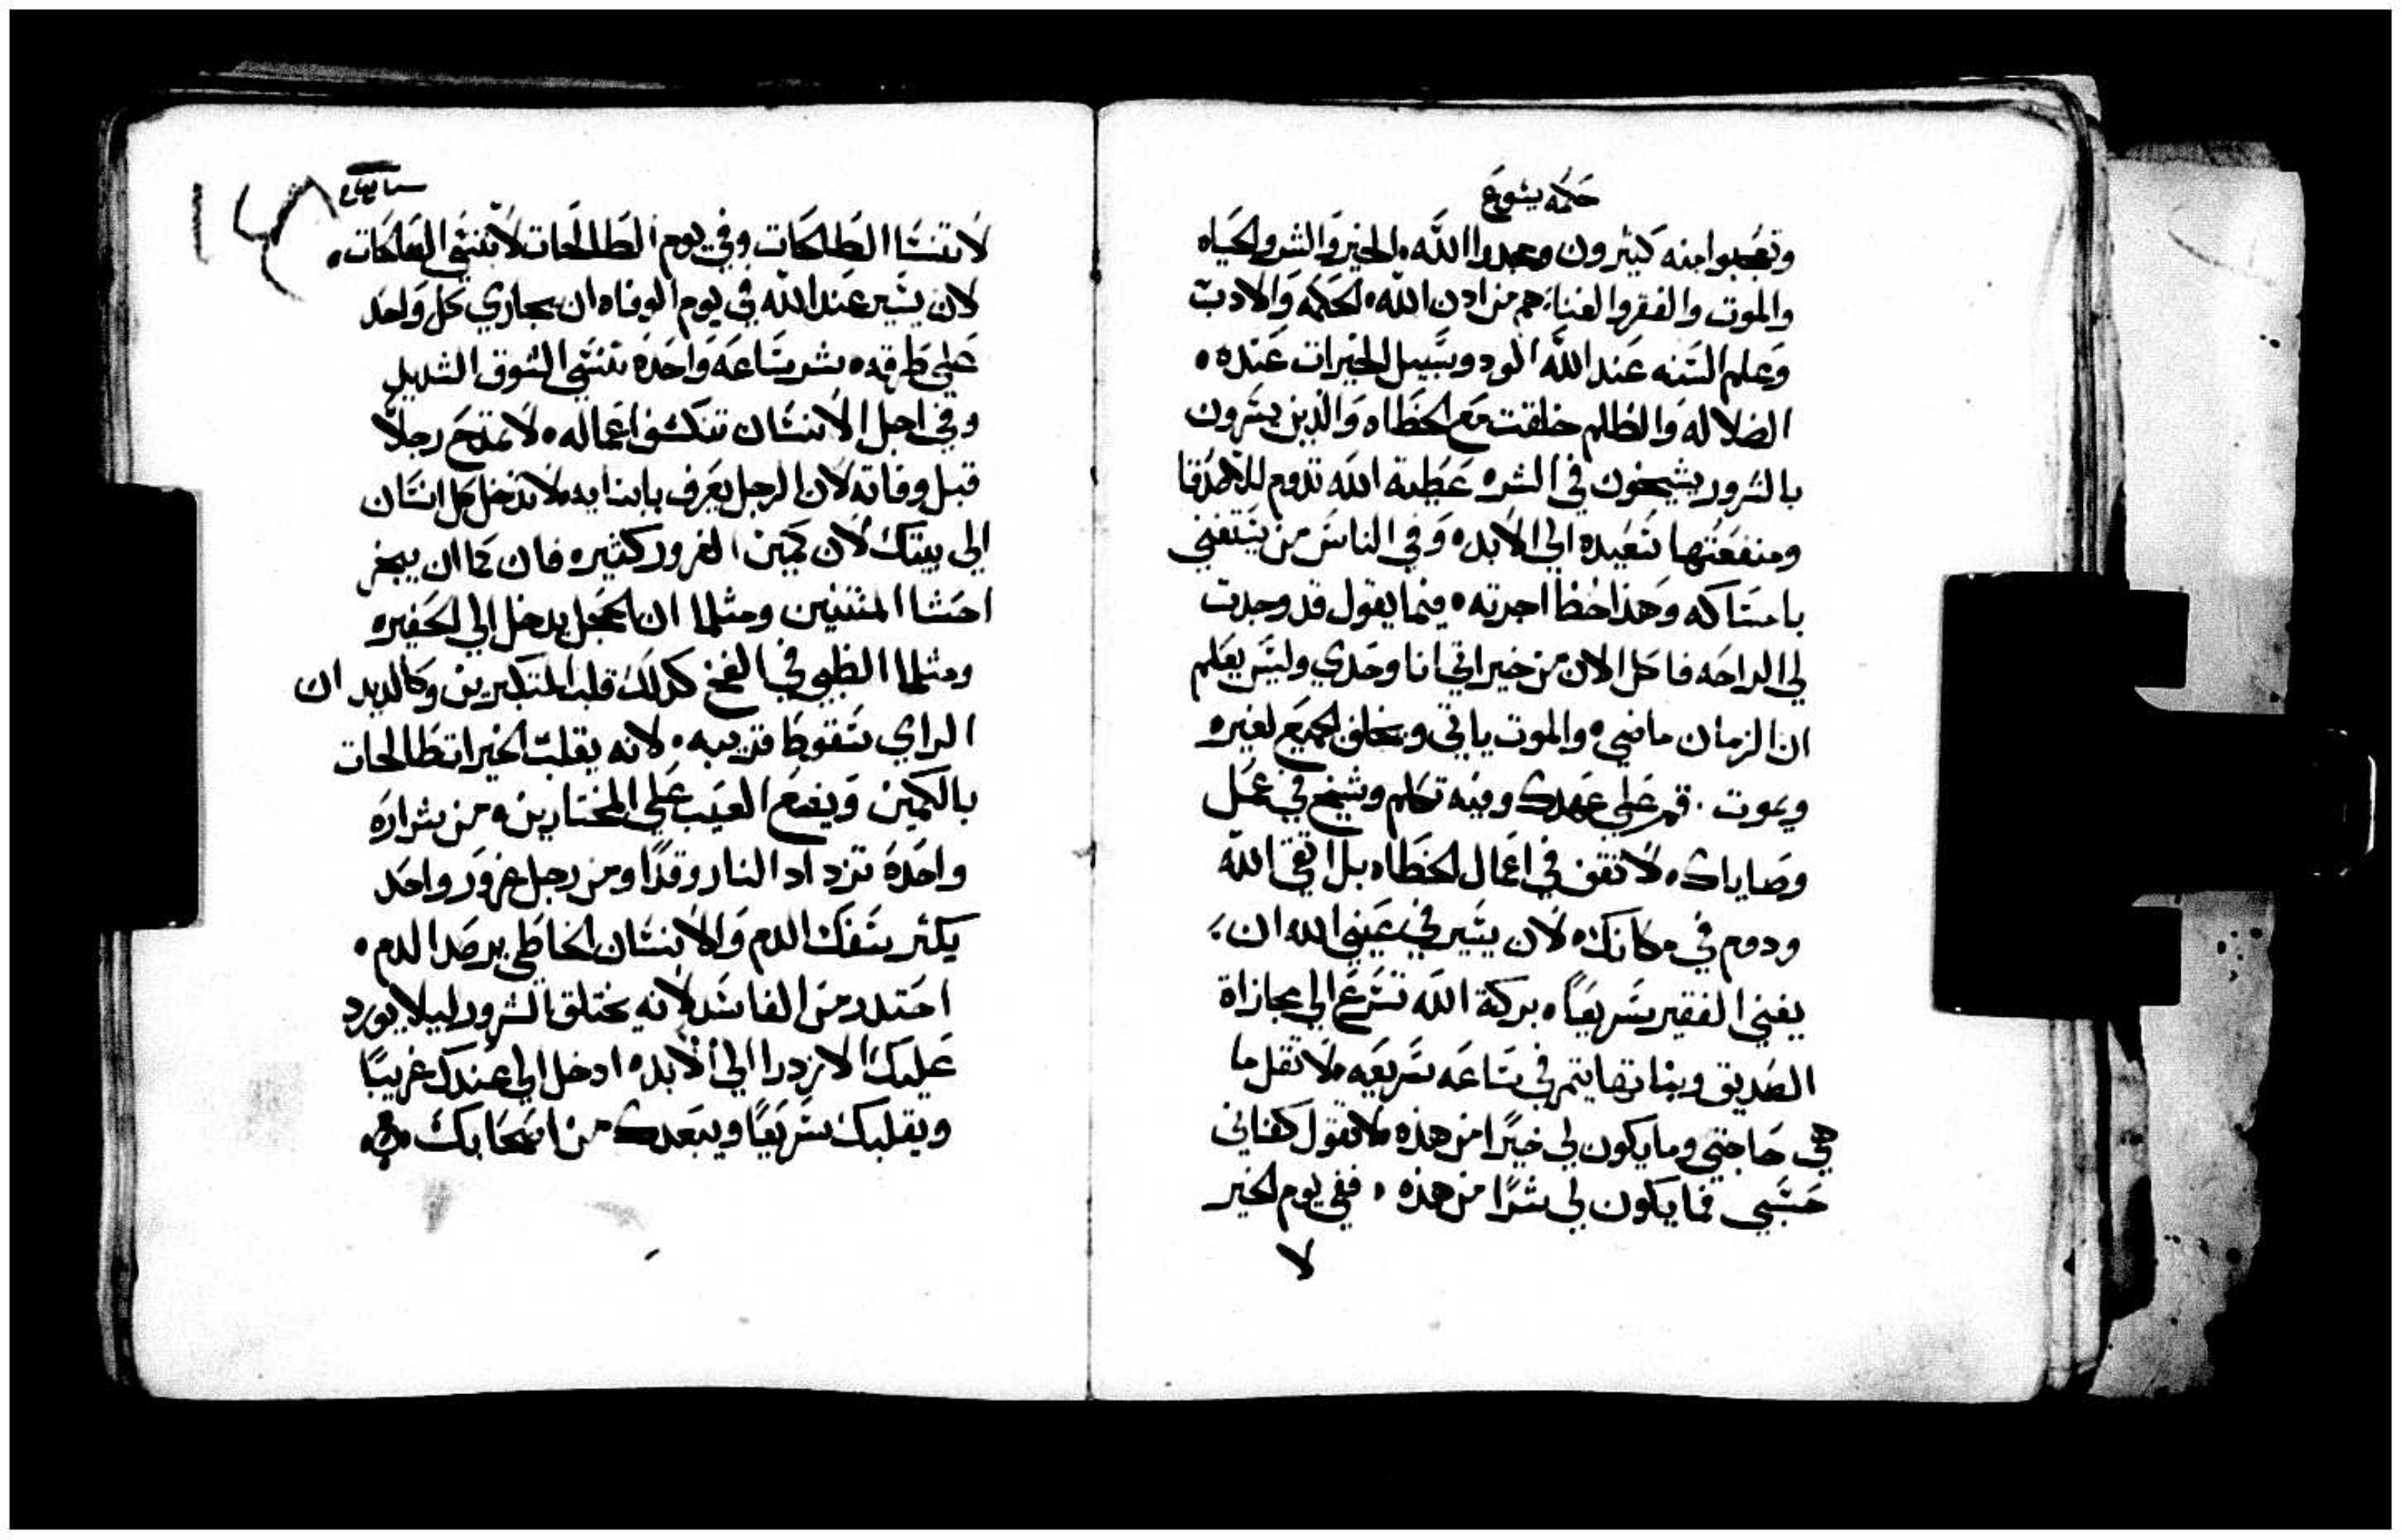 حكمه يشوع
وتعجبوا منه كثيرون ومجدوا الله. الخير والشر والحياه
والموت والفقر والغنا. هم من ادن الله. الحكمه والادب
وعلم السنه عند الله الود وسبيل الخيرات عنده.
الضلاله والظلم خلقت مع الخطاه والذين يسرون
بالشرور يشيخون في الشر. عطية الله تدوم للاصدقا
ومنفعتها تعيده الى الابد. وفي الناس من يستغني
بامساكه وهذا حظ اجرته. فيما يقول قد وجدت
لي الراحه فاكل الان من خيراتي انا وحدي وليس يعلم
ان الزمان ماضي. والموت ياتي ويخلف الجميع لغيره
ويموت. قم علي عهدك وفيه تكلم وشيخ في عمل
وصاياك. لا تقف في اعمال الخطاه بل اتق الله
ودوم في مكانك. لان يسير في عيني الله ان
يغني الفقير سريعًا. بركة الله تسرع الي مجازاة
الصديق وبناتها يتم في ساعه سريعه. لا تقل ما
هي حاجتي وما يكون لي خيرًا من هذه. لا تقول كفاني
حسبي فما يكون لي شرًا من هذه. ففي يوم الخير
لا
سابيان
لا تنسا الطالحات وفي يوم الطالحات لا تنسى الصالحات.
لان يسير عند الله في يوم الوفاه ان يجازي كل واحد
علي طرقه. شر ساعه واحده تنسى الشوق الشديد
وفي اجل الانسان تنكشف اعماله. لا تمدح رجلًا
قبل وفاته لان الرجل يعرف بابنايه. لا تدخل كل انسان
الي بيتك لان كمين الغرور كثيره فان كما ان يبخر
احشا المنتنين ومثلما ان الحجل يدخل الي الحفيره
ومثلما الظبي في الفخ كدلك قلب المتكبرين وكالديد ان
الراي سقوط قريبه. لانه يقلب الخيرات طالحات
بالكمين ويضع العيب علي المختارين. من شراره
واحدة تزداد النار وقدًا ومن رجل غرور واحد
يكثر سفك الدم والانسان الخاطي يرصد الدم.
احتدر من الفاسد لانه يختلق الشرور ليلا يورد
عليك الازدرا الي الابد. ادخل الي عندك غريبًا
ويقلبك سريعًا ويبعدك من اصحابك